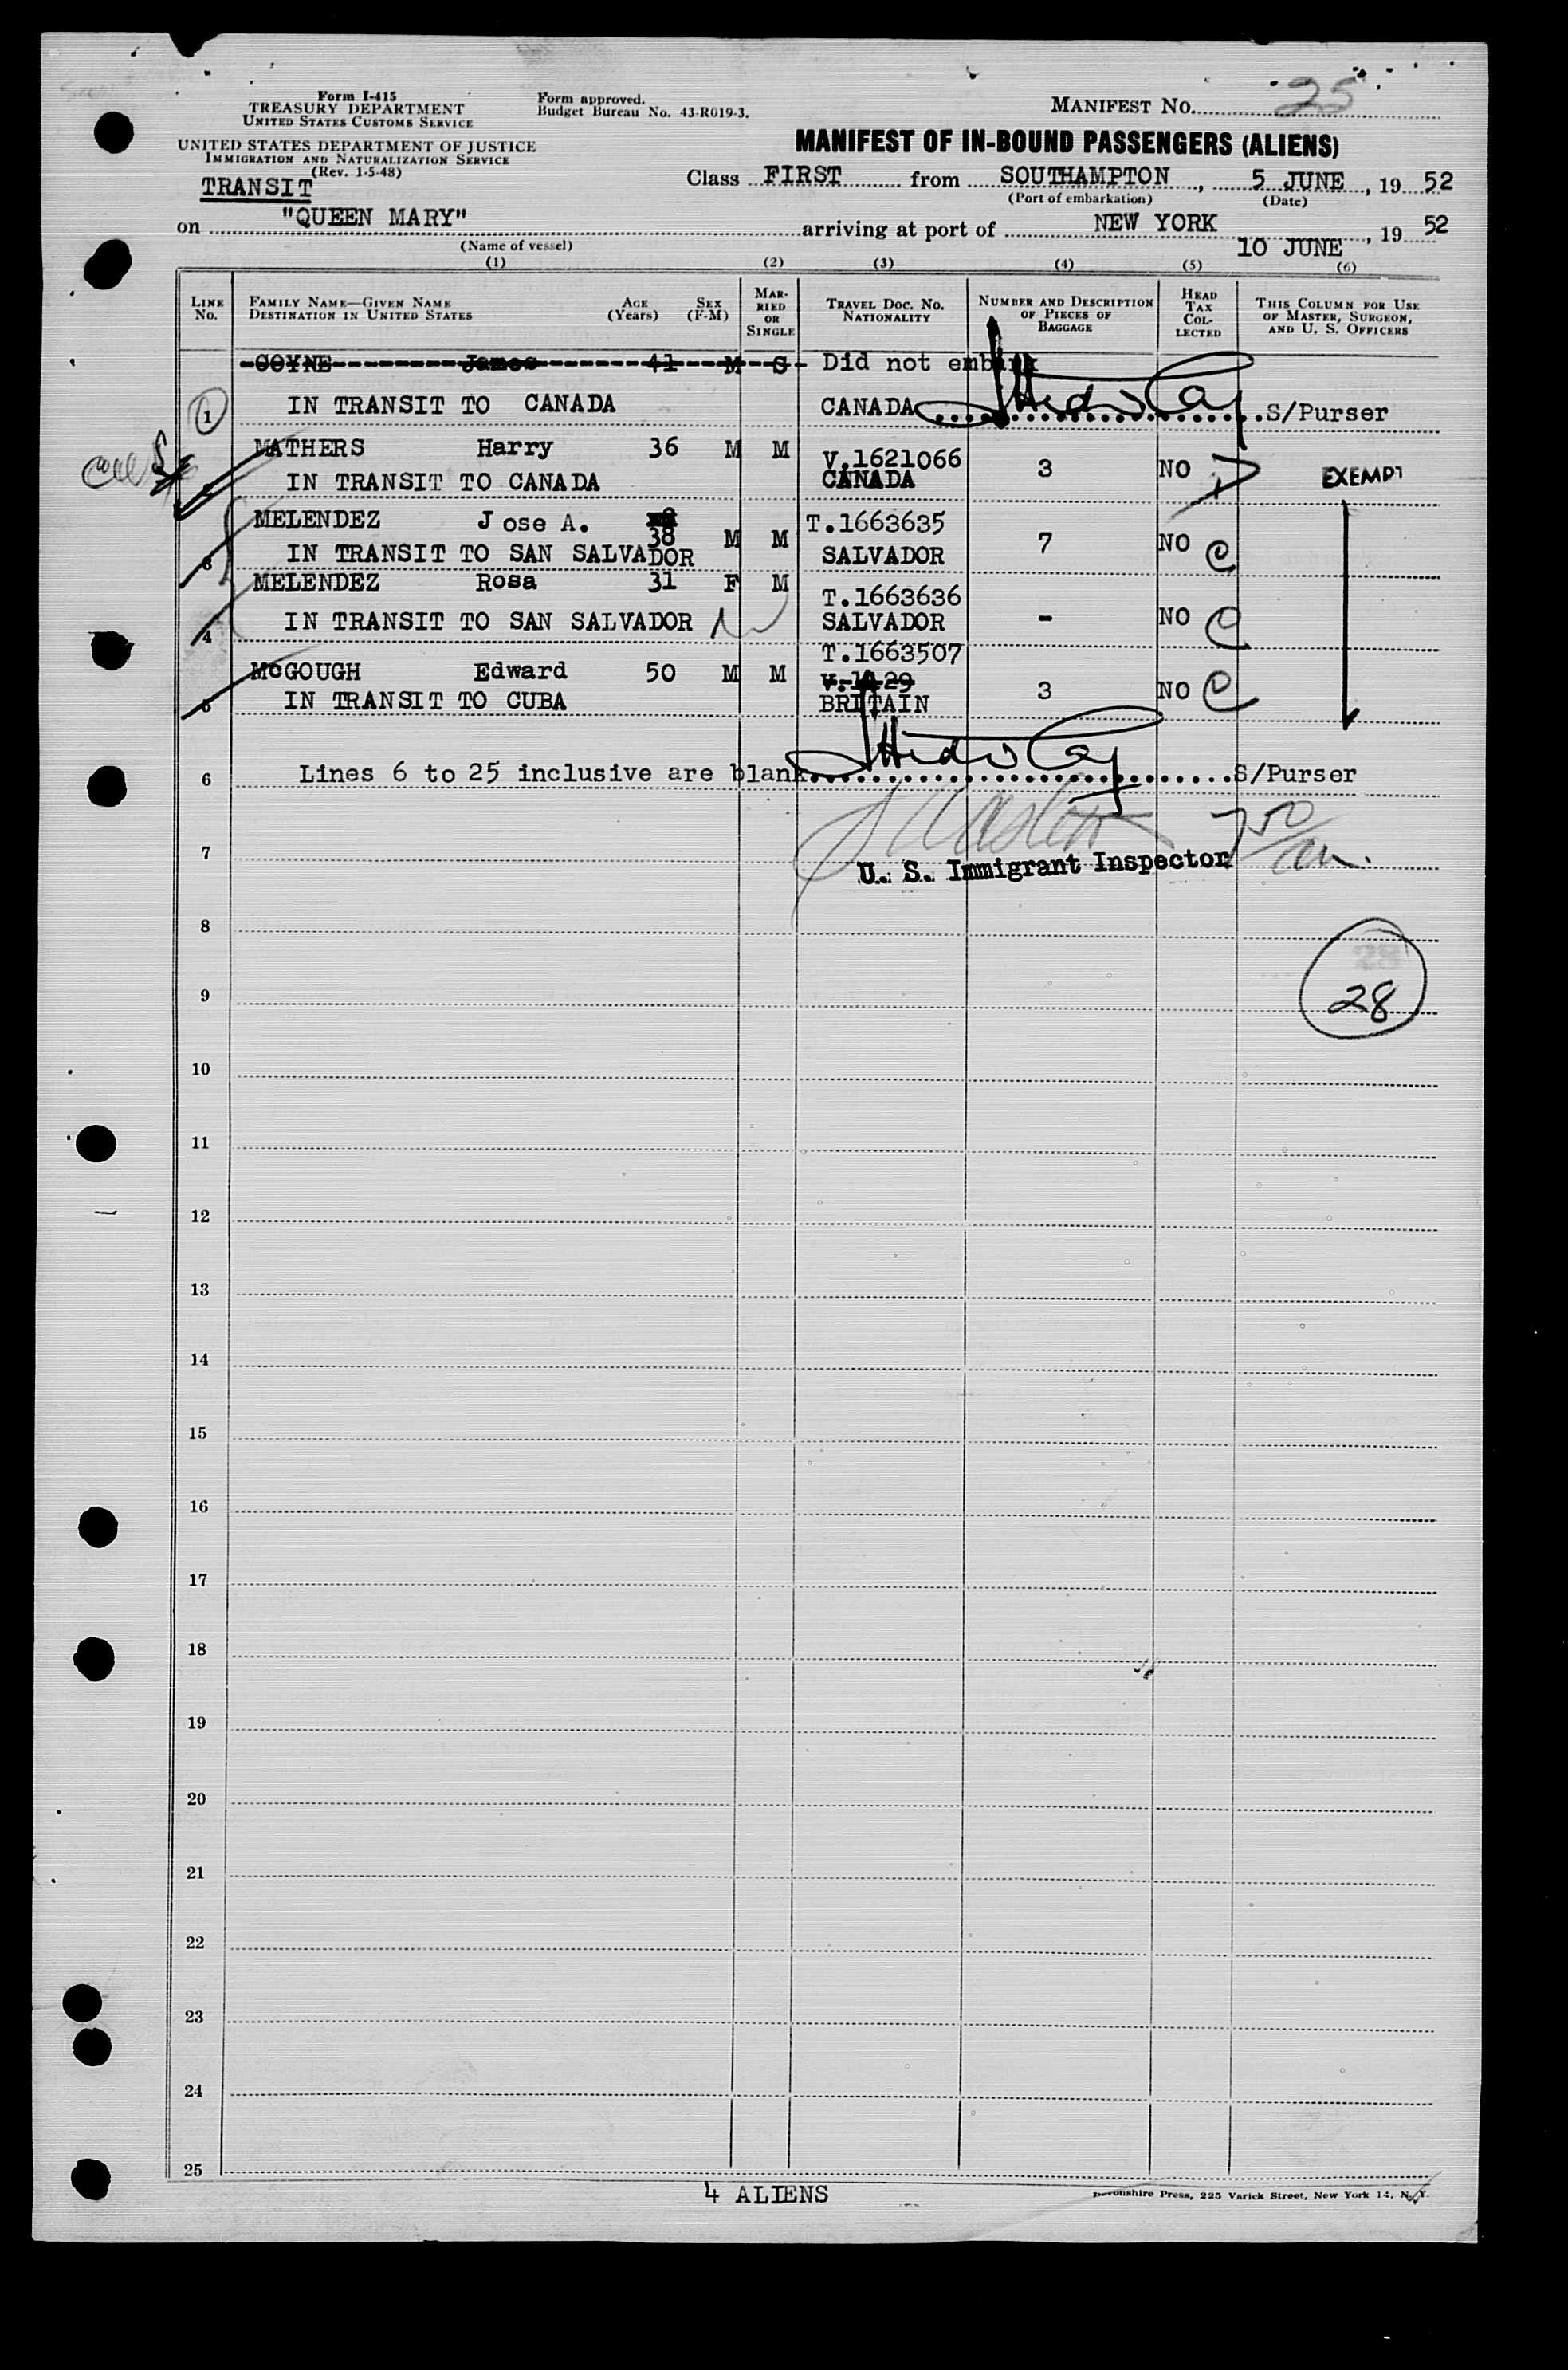 Form I-415
TREASURY DEPARTMENT
UNITED STATES CUSTOMS SERVICE
UNITED STATES DEPARTMENT OF JUSTICE
IMMIGRATION AND NATURALIZATION SERVICE
(Rev. 1-5-48)
Form approved.
Budget Bureau No. 43-R019-3.
MANIFEST NO. 25
MANIFEST OF IN-BOUND PASSENGERS (ALIENS)
TRANSIT
Class FIRST from SOUTHAMPTON, 5 JUNE, 19 52
(Port of embarkation) (Date)
on "QUEEN MARY" arriving at port of NEW YORK 10 JUNE, 19 52
(Name of vessel)
(1) (2) (3) (4) (5) (6)
LINE No. FAMILY NAME—GIVEN NAME DESTINATION IN UNITED STATES AGE (Years) SEX (F-M) MARRIED OR SINGLE TRAVEL DOC. NO. NATIONALITY NUMBER AND DESCRIPTION OF PIECES OF BAGGAGE HEAD TAX COLLECTED THIS COLUMN FOR USE OF MASTER, SURGEON, AND U. S. OFFICERS
COYNE James 41 M S Did not embark
1 IN TRANSIT TO CANADA CANADA S/Purser
MATHERS Harry 36 M M V.1621066 3 NO EXEMPT
IN TRANSIT TO CANADA CANADA
MELENDEZ Jose A. 38 M M T.1663635 7 NO
3 IN TRANSIT TO SAN SALVADOR SALVADOR
MELENDEZ Rosa 31 F M T.1663636 - NO
4 IN TRANSIT TO SAN SALVADOR SALVADOR
T.1663507
McGOUGH Edward 50 M M 3 NO
5 IN TRANSIT TO CUBA BRITAIN
6 Lines 6 to 25 inclusive are blank S/Purser
7 U. S. Immigrant Inspector
8
28
9
28
10
11
12
13
14
15
16
17
18
19
20
21
22
23
24
25
4 ALIENS
Devonshire Press, 225 Varick Street, New York 14, N. Y.